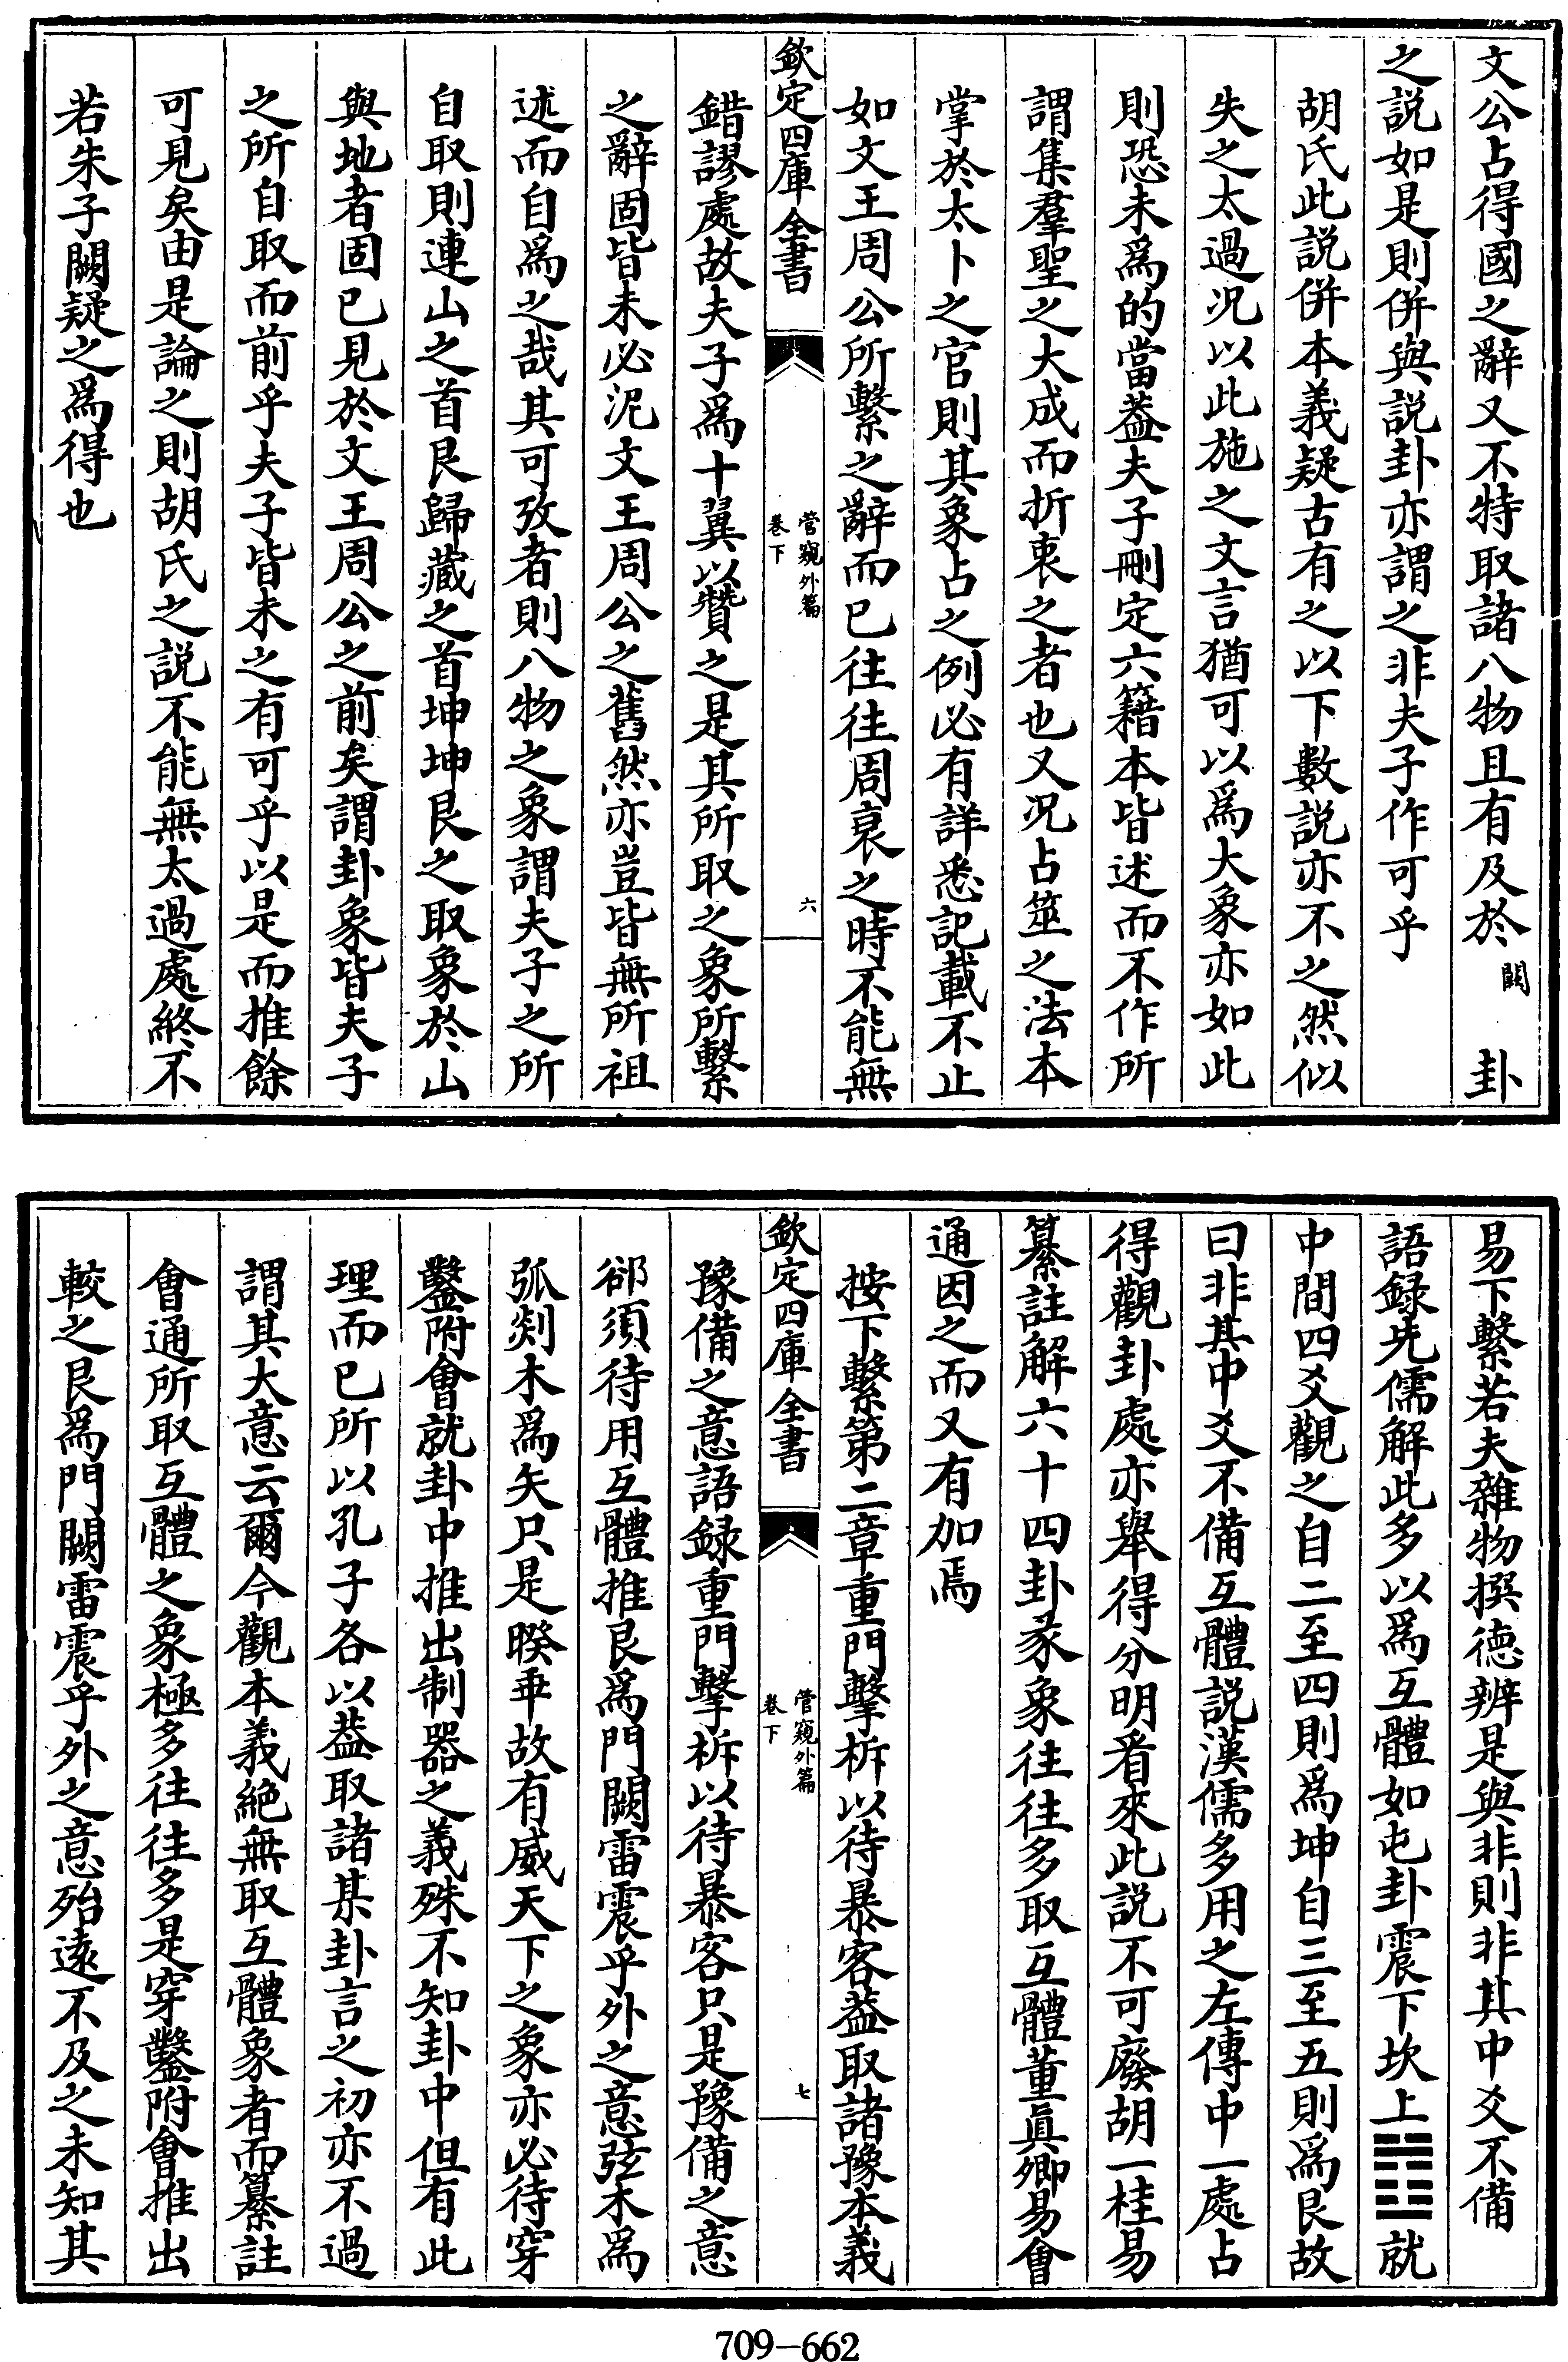 文公占得國之辭又不特取諸八物且有及於闕卦
之説如是則併與説卦亦謂之非夫子作可乎
胡氏此説併本義疑古有之以下數説亦不之然似
失之太過况以此施之文言猶可以爲大象亦如此
則恐未爲的當葢夫子刪定六籍本皆述而不作所
謂集羣聖之大成而折衷之者也又况占筮之法本
掌於太卜之官則其象占之例必有詳悉記載不止
如文王周公所繫之辭而已往往周衰之時不能無
欽定四庫全書
管窺外篇
卷下
六
錯謬處故夫子爲十翼以贊之是其所取之象所繫
之辭固皆未必泥文王周公之舊然亦豈皆無所祖
述而自爲之哉其可攷者則八物之象謂夫子之所
自取則連山之首艮歸藏之首坤坤艮之取象於山
與地者固已見於文王周公之前矣謂卦象皆夫子
之所自取而前乎夫子皆未之有可乎以是而推餘
可見矣由是論之則胡氏之説不能無太過處終不
若朱子闕疑之爲得也
易下繫若夫雜物撰徳辨是與非則非其中爻不備
語録先儒解此多以爲互體如屯卦震下坎上䷂就
中間四爻觀之自二至四則爲坤自三至五則爲艮故
曰非其中爻不備互體説漢儒多用之左傳中一處占
得觀卦處亦舉得分明看來此説不可廢胡一桂易
纂註解六十四卦彖象往往多取互體董眞卿易會
通因之而又有加焉
按下繫第二章重門擊柝以待暴客葢取諸豫本義
欽定四庫全書
管窺外篇
卷下
七
豫備之意語録重門擊柝以待暴客只是豫備之意
郤須待用互體推艮爲門闕雷震乎外之意弦木爲
弧剡木爲矢只是睽乖故有威天下之象亦必待穿
鑿附會就卦中推出制器之義殊不知卦中但有此
理而已所以孔子各以葢取諸某卦言之初亦不過
謂其大意云爾今觀本義絶無取互體象者而纂註
會通所取互體之象極多往往多是穿鑿附會推出
較之艮爲門闕雷震乎外之意殆遠不及之未知其
709-662